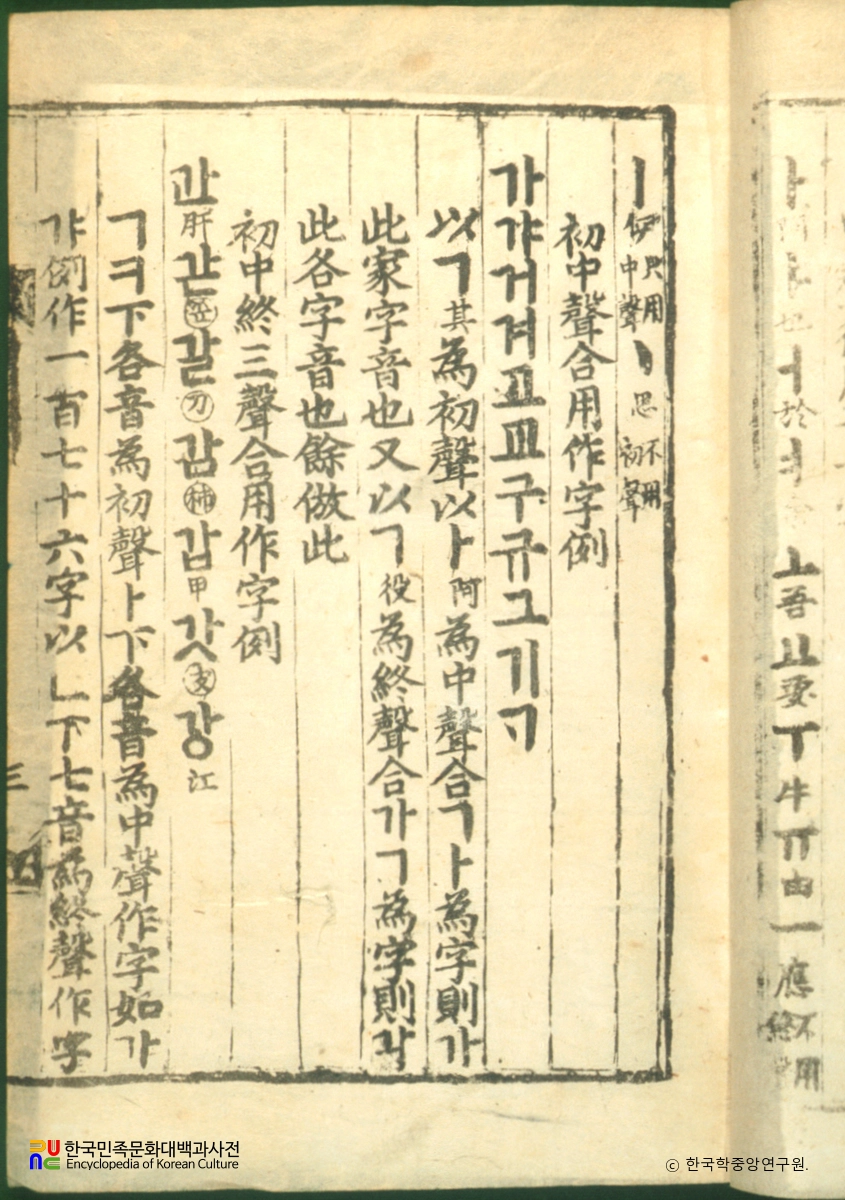 ㅏ阿ㅑ也ㅓ於ㅕ余ㅗ吾ㅛ要ㅜ牛ㅠ由ㅡ應不用終聲
ㅣ伊只用中聲ㆍ思不用初聲
初中聲合用作字例
가갸거겨고교구규그기ᄀᆞ
以ㄱ其為初聲以ㅏ阿為中聲合ㄱㅏ為字則가
此家字音也又以ㄱ役為終聲合가ㄱ為字則각
此各字音也餘倣此
初中終三聲合用作字例
간肝갇笠갈刀감柿갑甲갓皮강江
ㄱㅋ下各音為初聲ㅏ下各音為中聲作字如가
갸例作一百七十六字以ㄴ下七音為終聲作字
三
한국민족문화대백과사전
Encyclopedia of Korean Culture
ⓒ 한국학중앙연구원.